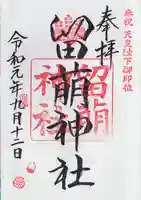 奉祝 天皇陛下御即位
奉拝
留萌神社
留萌
神社
令和元年九月十二日